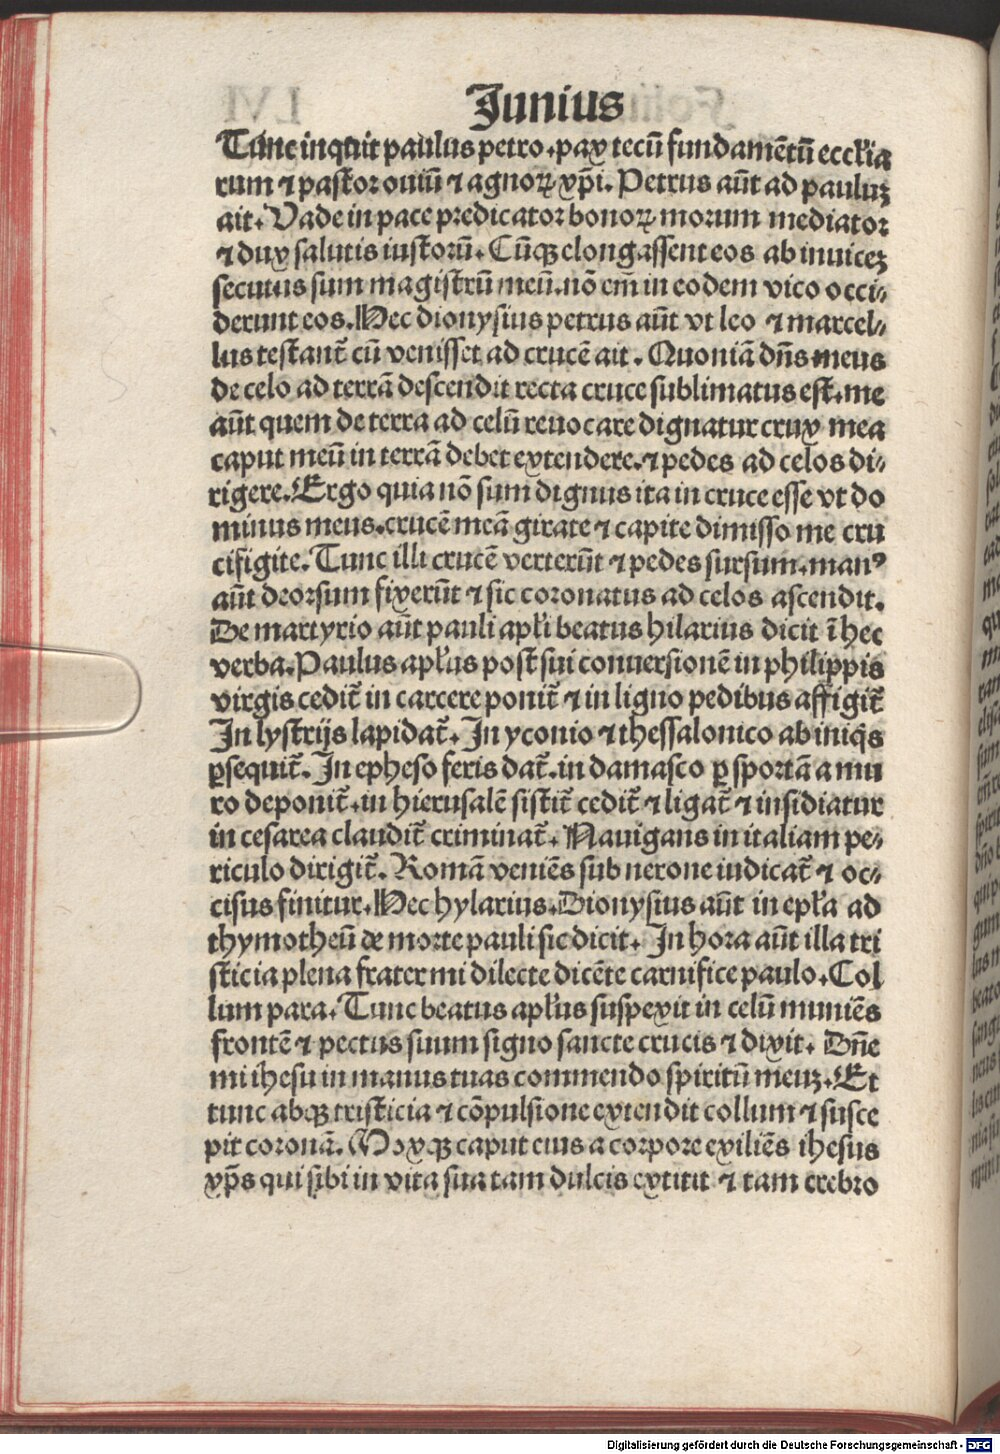 Junius
Tunc inquit paulus petro.pax tecū fundamētū eccłia
rum ⁊ pastor ouiū ⁊ agnoꝝ xp̄i. Petrus aūt ad pauluꝫ
ait. Vade in pace predicator bonoꝝ morum mediator
⁊ dux salutis iustorū. Cūqꝫ elongassent eos ab inuiceꝫ
secutus sum magistrū meū.nō em̄ in eodem vico occi-
derunt eos.Hec dionysius petrus aūt vt leo ⁊ marcel-
lus testant᷑ cū venisset ad crucē ait. Quoniā dn̄s meus
de celo ad terrā descendit recta cruce sublimatus est.me
aūt quem de terra ad celū reuocare dignatur crux mea
caput meū in terrā debet extendere.⁊ pedes ad celos di-
rigere.Ergo quia nō sum dignus ita in cruce esse vt do
minus meus.crucē meā girate ⁊ capite dimisso me cru
cifigite. Tunc illi crucē verterūt ⁊ pedes sursum.manꝰ
aūt deorsum fixerūt ⁊ sic coronatus ad celos ascendit.
De martyrio aūt pauli apłi beatus hilarius dicit ī hec
verba.Paulus apłus post sui conuersionē in philippis
virgis cedit᷑ in carcere ponit᷑ ⁊ in ligno pedibus affigit᷑
In lystrijs lapidat᷑. In yconio ⁊ thessalonico ab iniq̄s
ꝑsequit᷑. In epheso feris dat᷑.in damasco ꝑ sportā a mu
ro deponit᷑.in hierusalē sistit᷑ cedit᷑ ⁊ ligat᷑ ⁊ insidiatur
in cesarea claudit᷑ criminat᷑. Nauigans in italiam pe-
riculo dirigit᷑. Romā veniēs sub nerone iudicat᷑ ⁊ oc-
cisus finitur.Hec hylarius.Dionysius aūt in epła ad
thymotheū de morte pauli sic dicit. In hora aūt illa tri
sticia plena frater mi dilecte dicēte carnifice paulo.Col
lum para. Tunc beatus apłus suspexit in celū muniēs
frontē ⁊ pectus suum signo sancte crucis ⁊ dixit. Dn̄e
mi ihesu in manus tuas commendo spiritū meuꝫ.Et
tunc absqꝫ tristicia ⁊ cōpulsione extendit collum ⁊ susce
pit coronā. Moxqꝫ caput eius a corpore exiliēs ihesus
xp̄s qui sibi in vita sua tam dulcis extitit ⁊ tam crebro
Digitalisierung gefördert durch die Deutsche Forschungsgemeinschaft - DFG